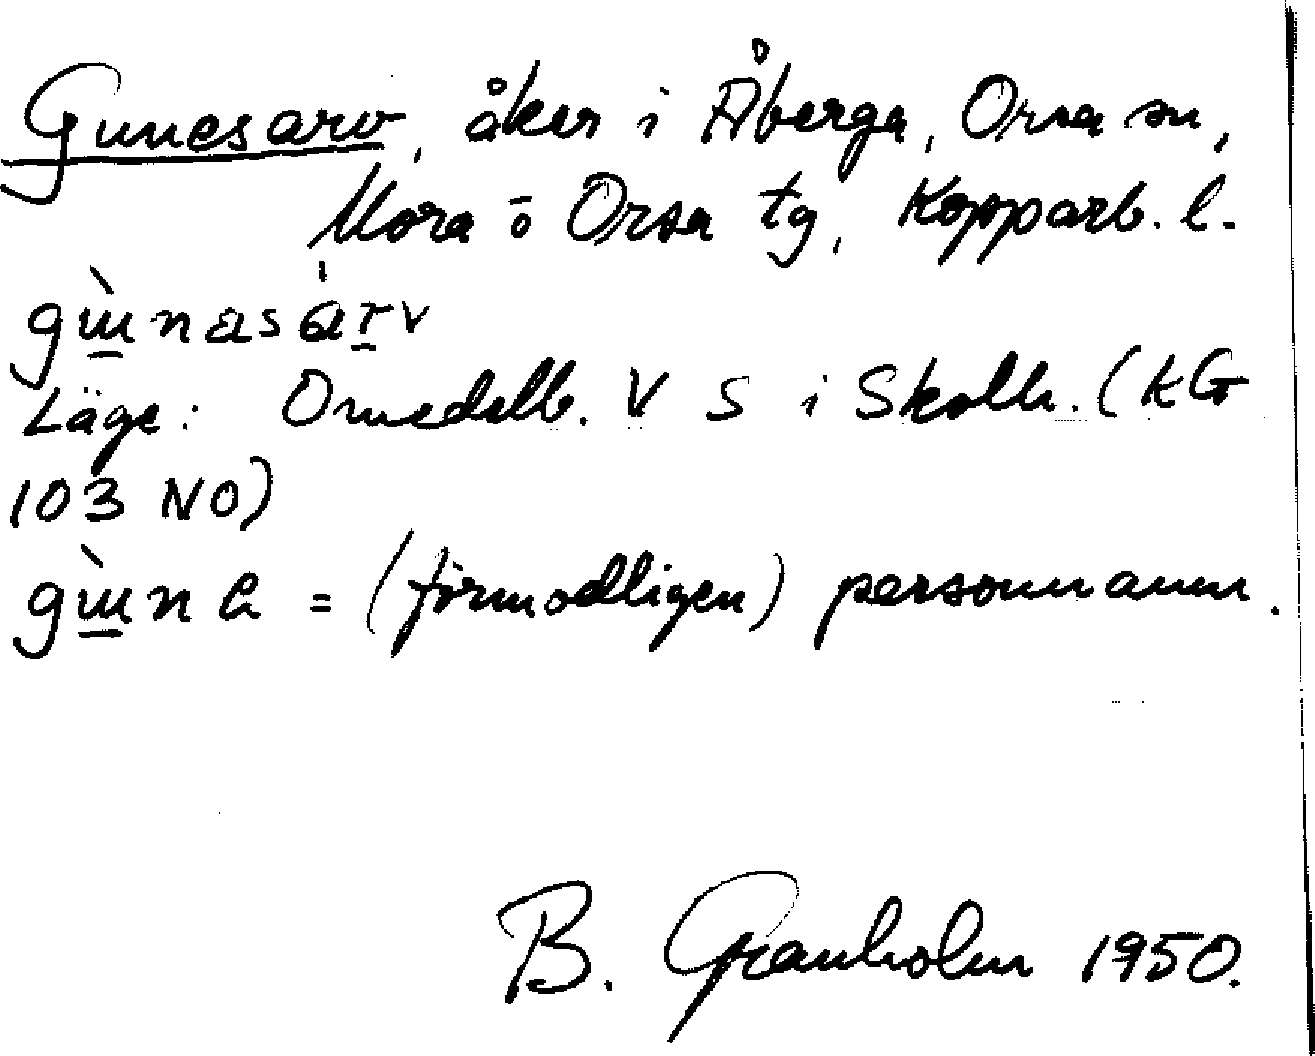 Gunesarv, åker i Åberga, Orsa sn,
Mora o Orsa tg, Kopparb. l.
Läge: Omedelb. V S i Skolh. (KG
103 NO)
= (förmodligen) personnamn.
B. Granholm 1950.